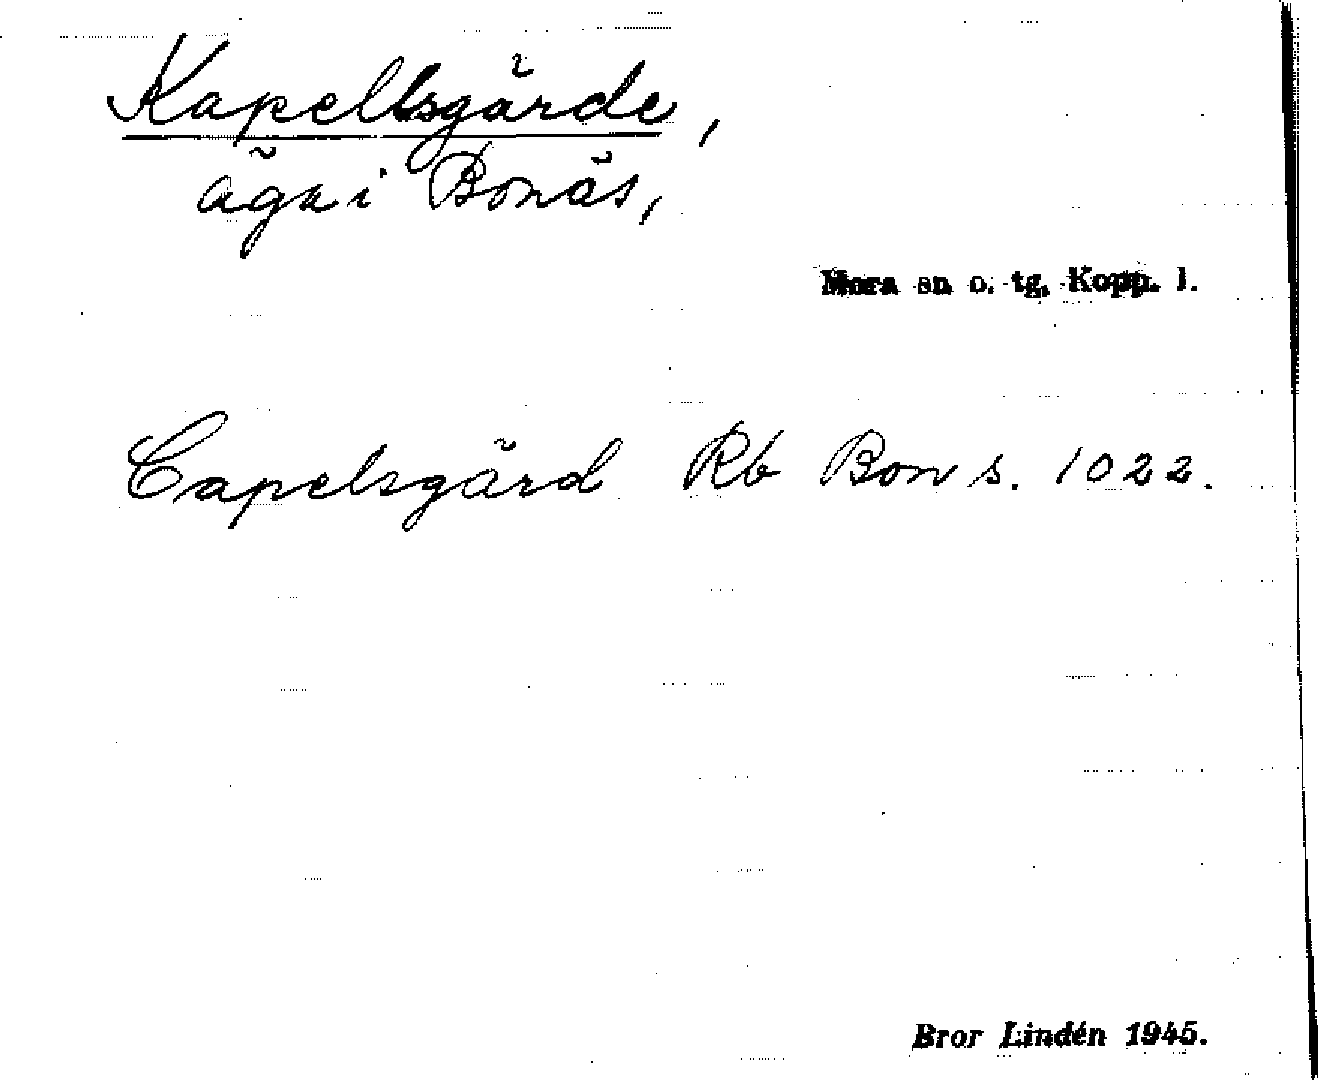 Kapellsgärde,
äga i Bonäs,
Mora sn o. tg. Kopp. l.
Capelsgärd Rb Bon s. 1022.
Bror Lindén 1945.